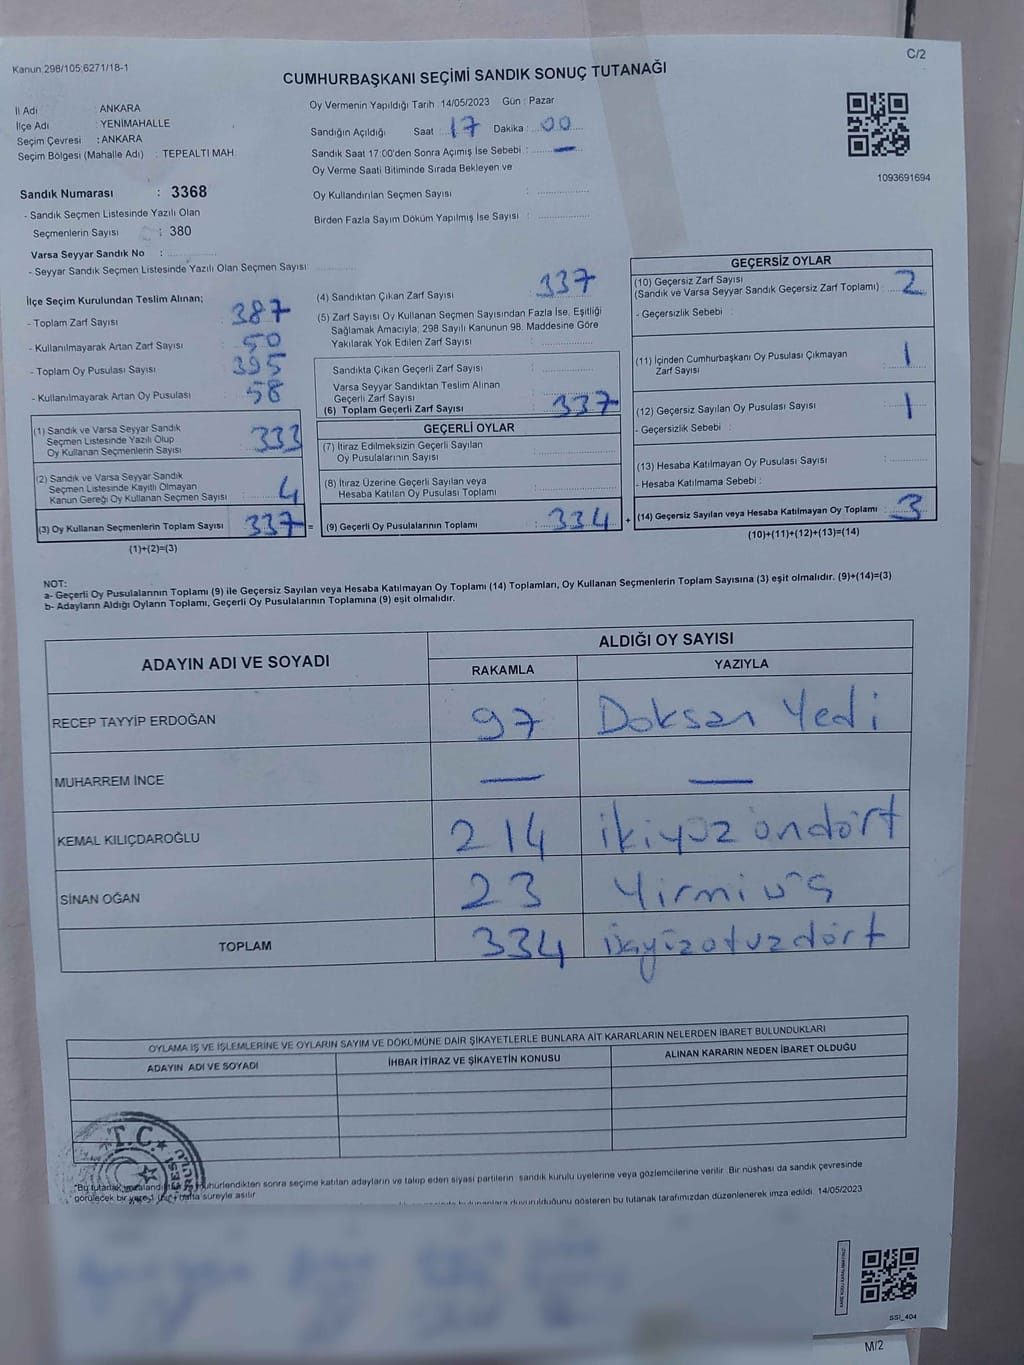 Kanun:298/105;6271/18-1
C/2
CUMHURBAŞKANI SEÇİMİ SANDIK SONUÇ TUTANAĞI
İl Adı ANKARA
İlçe Adı : YENİMAHALLE
Seçim Çevresi : ANKARA
Seçim Bölgesi (Mahalle Adı) : TEPEALTI MAH.
Sandık Numarası : 3368
- Sandık Seçmen Listesinde Yazılı Olan
Seçmenlerin Sayısı : 380
Varsa Seyyar Sandık No :
- Seyyar Sandık Seçmen Listesinde Yazılı Olan Seçmen Sayısı
Oy Vermenin Yapıldığı Tarih : 14/05/2023 Gün : Pazar
Sandığın Açıldığı Saat : 17 Dakika : 00
Sandık Saat 17:00'den Sonra Açımış İse Sebebi : —
Oy Verme Saati Bitiminde Sırada Bekleyen ve
Oy Kullandırılan Seçmen Sayısı :
Birden Fazla Sayım Döküm Yapılmış İse Sayısı :
1093691694
İlçe Seçim Kurulundan Teslim Alınan;
- Toplam Zarf Sayısı : 387
- Kullanılmayarak Artan Zarf Sayısı : 50
- Toplam Oy Pusulası Sayısı : 395
- Kullanılmayarak Artan Oy Pusulası : 58
(1) Sandık ve Varsa Seyyar Sandık
Seçmen Listesinde Yazılı Olup
Oy Kullanan Seçmenlerin Sayısı : 333
(2) Sandık ve Varsa Seyyar Sandık
Seçmen Listesinde Kayıtlı Olmayan
Kanun Gereği Oy Kullanan Seçmen Sayısı : 4
(3) Oy Kullanan Seçmenlerin Toplam Sayısı : 337 =
(1)+(2)=(3)
(4) Sandıktan Çıkan Zarf Sayısı : 337
(5) Zarf Sayısı Oy Kullanan Seçmen Sayısından Fazla İse, Eşitliği
Sağlamak Amacıyla, 298 Sayılı Kanunun 98. Maddesine Göre
Yakılarak Yok Edilen Zarf Sayısı :
Sandıkta Çıkan Geçerli Zarf Sayısı :
Varsa Seyyar Sandıktan Teslim Alınan
Geçerli Zarf Sayısı :
(6) Toplam Geçerli Zarf Sayısı : 337
GEÇERLİ OYLAR
(7) İtiraz Edilmeksizin Geçerli Sayılan
Oy Pusulalarının Sayısı :
(8) İtiraz Üzerine Geçerli Sayılan veya
Hesaba Katılan Oy Pusulası Toplamı :
(9) Geçerli Oy Pusulalarının Toplamı : 334 +
GEÇERSİZ OYLAR
(10) Geçersiz Zarf Sayısı
(Sandık ve Varsa Seyyar Sandık Geçersiz Zarf Toplamı) : 2
- Geçersizlik Sebebi :
(11) İçinden Cumhurbaşkanı Oy Pusulası Çıkmayan
Zarf Sayısı : 1
(12) Geçersiz Sayılan Oy Pusulası Sayısı : 1
- Geçersizlik Sebebi :
(13) Hesaba Katılmayan Oy Pusulası Sayısı :
- Hesaba Katılmama Sebebi :
(14) Geçersiz Sayılan veya Hesaba Katılmayan Oy Toplamı : 3
(10)+(11)+(12)+(13)=(14)
NOT:
a- Geçerli Oy Pusulalarının Toplamı (9) ile Geçersiz Sayılan veya Hesaba Katılmayan Oy Toplamı (14) Toplamları, Oy Kullanan Seçmenlerin Toplam Sayısına (3) eşit olmalıdır. (9)+(14)=(3)
b- Adayların Aldığı Oyların Toplamı, Geçerli Oy Pusulalarının Toplamına (9) eşit olmalıdır.
ADAYIN ADI VE SOYADI
ALDIĞI OY SAYISI
RAKAMLA YAZIYLA
RECEP TAYYİP ERDOĞAN 97 Doksan Yedi
MUHARREM İNCE — —
KEMAL KILIÇDAROĞLU 214 ikiyüz ondört
SİNAN OĞAN 23 Yirmi üç
TOPLAM 334
OYLAMA İŞ VE İŞLEMLERİNE VE OYLARIN SAYIM VE DÖKÜMÜNE DAİR ŞİKAYETLERLE BUNLARA AİT KARARLARIN NELERDEN İBARET BULUNDUKLARI
ADAYIN ADI VE SOYADI İHBAR İTİRAZ VE ŞİKAYETİN KONUSU ALINAN KARARIN NEDEN İBARET OLDUĞU
T.C.
"Bu tutanak sonra seçime katılan adayların ve talep eden siyasi partilerin sandık kurulu üyelerine veya gözlemcilerine verilir. Bir nüshası da sandık çevresinde
görülecek bir yere 1 (bir) hafta süreyle asılır.
duyurulduğunu gösteren bu tutanak tarafımızdan düzenlenerek imza edildi. 14/05/2023
SSI_404
M/2